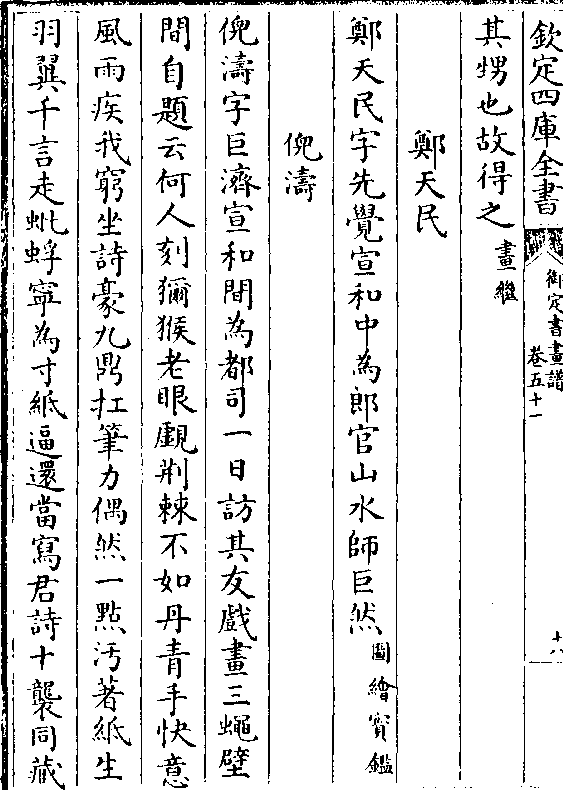 欽定四庫全書
御定書畫譜
卷五十一
十八
其甥也故得之畫繼
鄭天民
鄭天民字先覺宣和中為郎官山水師巨然圖繪寳鑑
倪濤
倪濤字巨濟宣和間為都司一日訪其友戲畫三蠅壁
間自題云何人刻獼猴老眼覰荆棘不如丹青手快意
風雨疾我窮坐詩豪九鼎扛筆力偶然一點汚著紙生
羽翼千言走蚍蜉寧為寸紙逼還當寫君詩十襲同藏